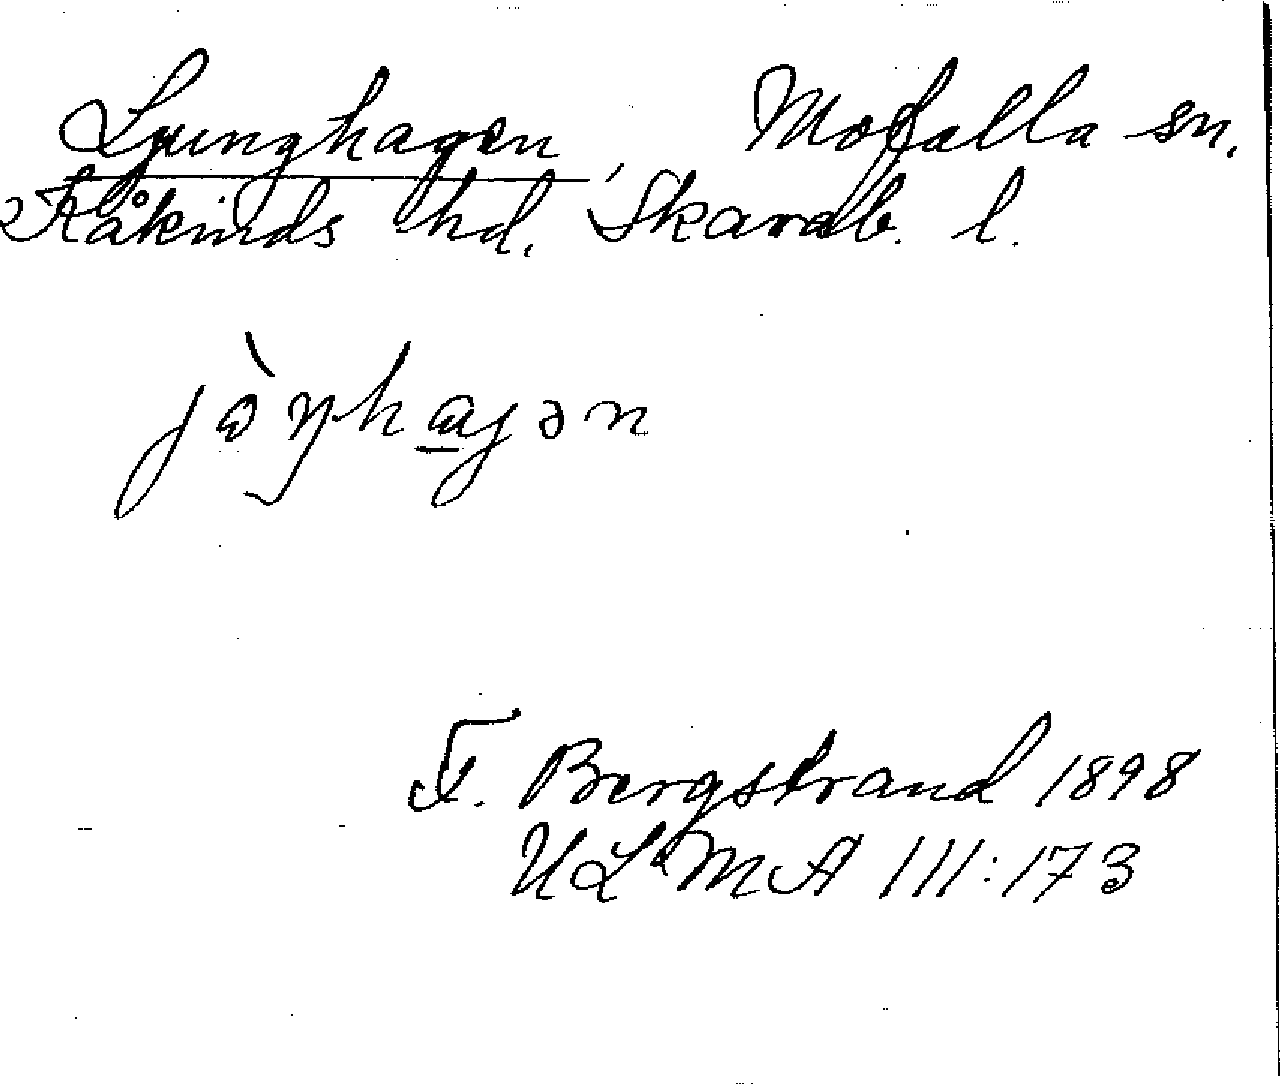 Ljunghagen, Mofalla sn.
Kåkinds hd. Skarab. l.
jɷ̀ŋhaɡən
F. Bergstrand 1898
ULMA 111:173